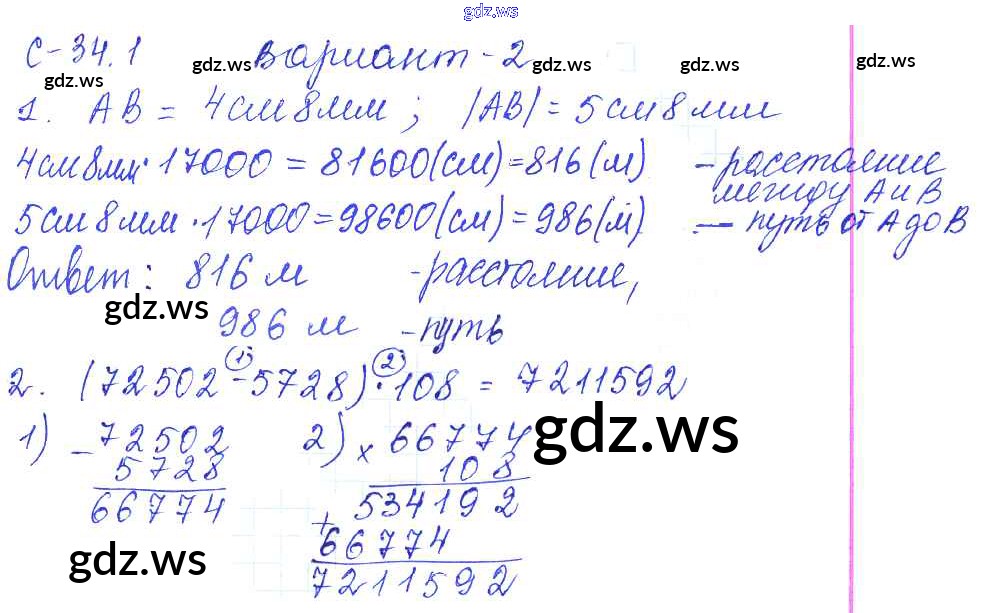 gdz.ws
С-34.1 Вариант-2
gdz.ws gdz.ws gdz.ws gdz.ws gdz.ws
1. AB = 4см 8мм ; |AB| = 5см 8мм
4см 8мм · 17000 = 81600(см) = 816(м) - расстояние между А и В
gdz.ws gdz.ws gdz.ws gdz.ws
5см 8мм · 17000 = 98600(см) = 986(м) - путь от А до В
Ответ: 816 м - расстояние,
gdz.ws
986 м - путь
2. (72502 - 5728) · 108 = 7211592
(1) (2)
gdz.ws
1) - 72502
5728
66774
2) × 66774
108
534192
+ 66774
7211592
gdz.ws